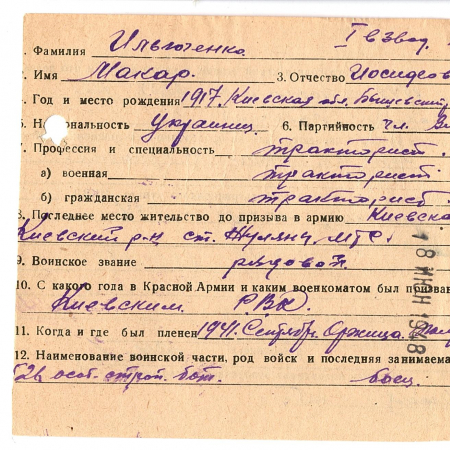 . Фамилия Ильюченко I взвод.
. Имя Макар. 3. Отчество Иосифов
. Год и место рождения 1917. Киевская обл. Бышевский
5. Национальность украинец 6. Партийность чл.
7. Профессия и специальность тракторист.
а) военная тракторист
б) гражданская тракторист.
8. Последнее место жительство до призыва в армию Киевска
Киевский р-н ст. Жуляны МТС.
9. Воинское звание рядовой.
10. С какого года в Красной Армии и каким военкоматом был призван
Киевским РВК
11. Когда и где был пленен 1941. Сентябрь Оржица.
12. Наименование воинской части, род войск и последняя занимаема
особ. строй. бат. боец.
18 ИЮН 1948